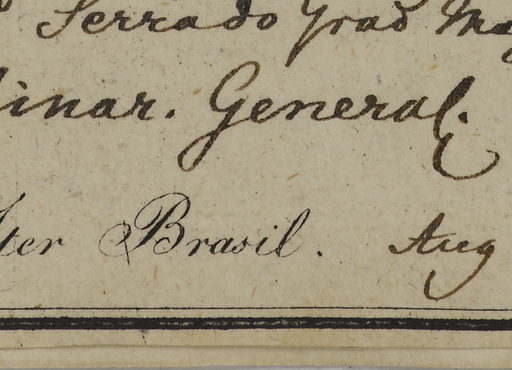 Serra do Grad
inar. General.
ter Brasil. Aug